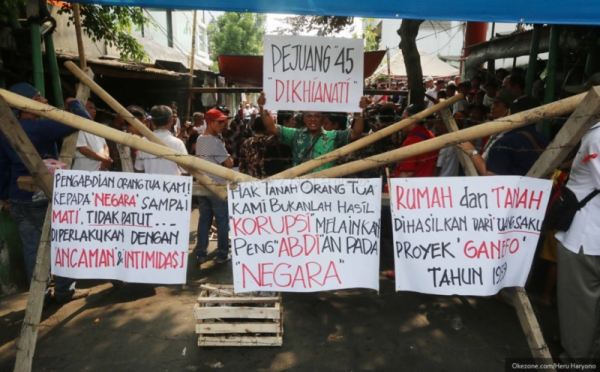 PEJUANG '45
"DIKHIANATI"
PENGABDIAN ORANG TUA KAMI
KEPADA "NEGARA" SAMPAI
MATI. TIDAK PATUT...
DIPERLAKUKAN DENGAN
ANCAMAN & INTIMIDASI!
HAK TANAH ORANG TUA
KAMI BUKANLAH HASIL
KORUPSI MELAINKAN
PENG"ABDI"AN PADA
"NEGARA"
RUMAH dan TANAH
DIHASILKAN DARI UANG SAKU
PROYEK "GANEFO"
TAHUN
Okezone.com/Heru Haryono